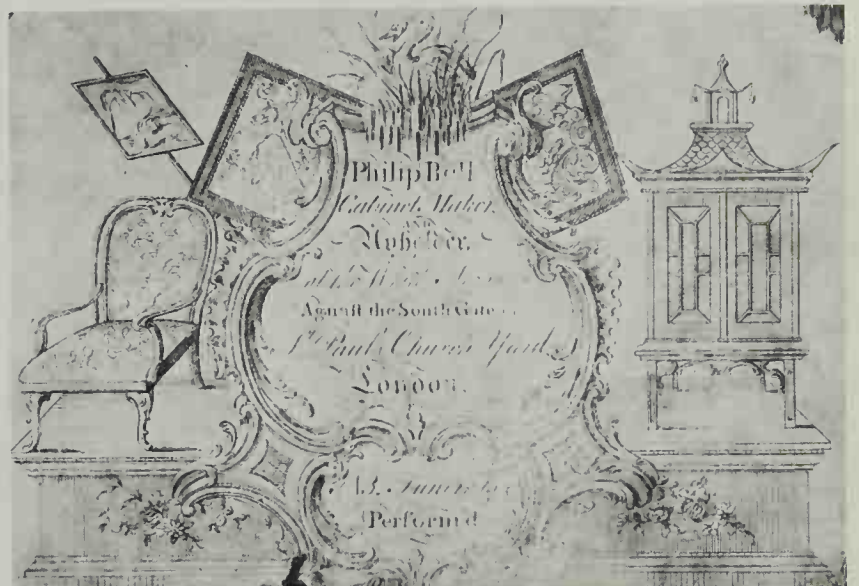 Philip Bell
Cabinet Maker,
AND
Upholder,
at the White Swan
Against the South Gate in
St. Paul's Church Yard,
London.
N.B. Funerals
Perform'd